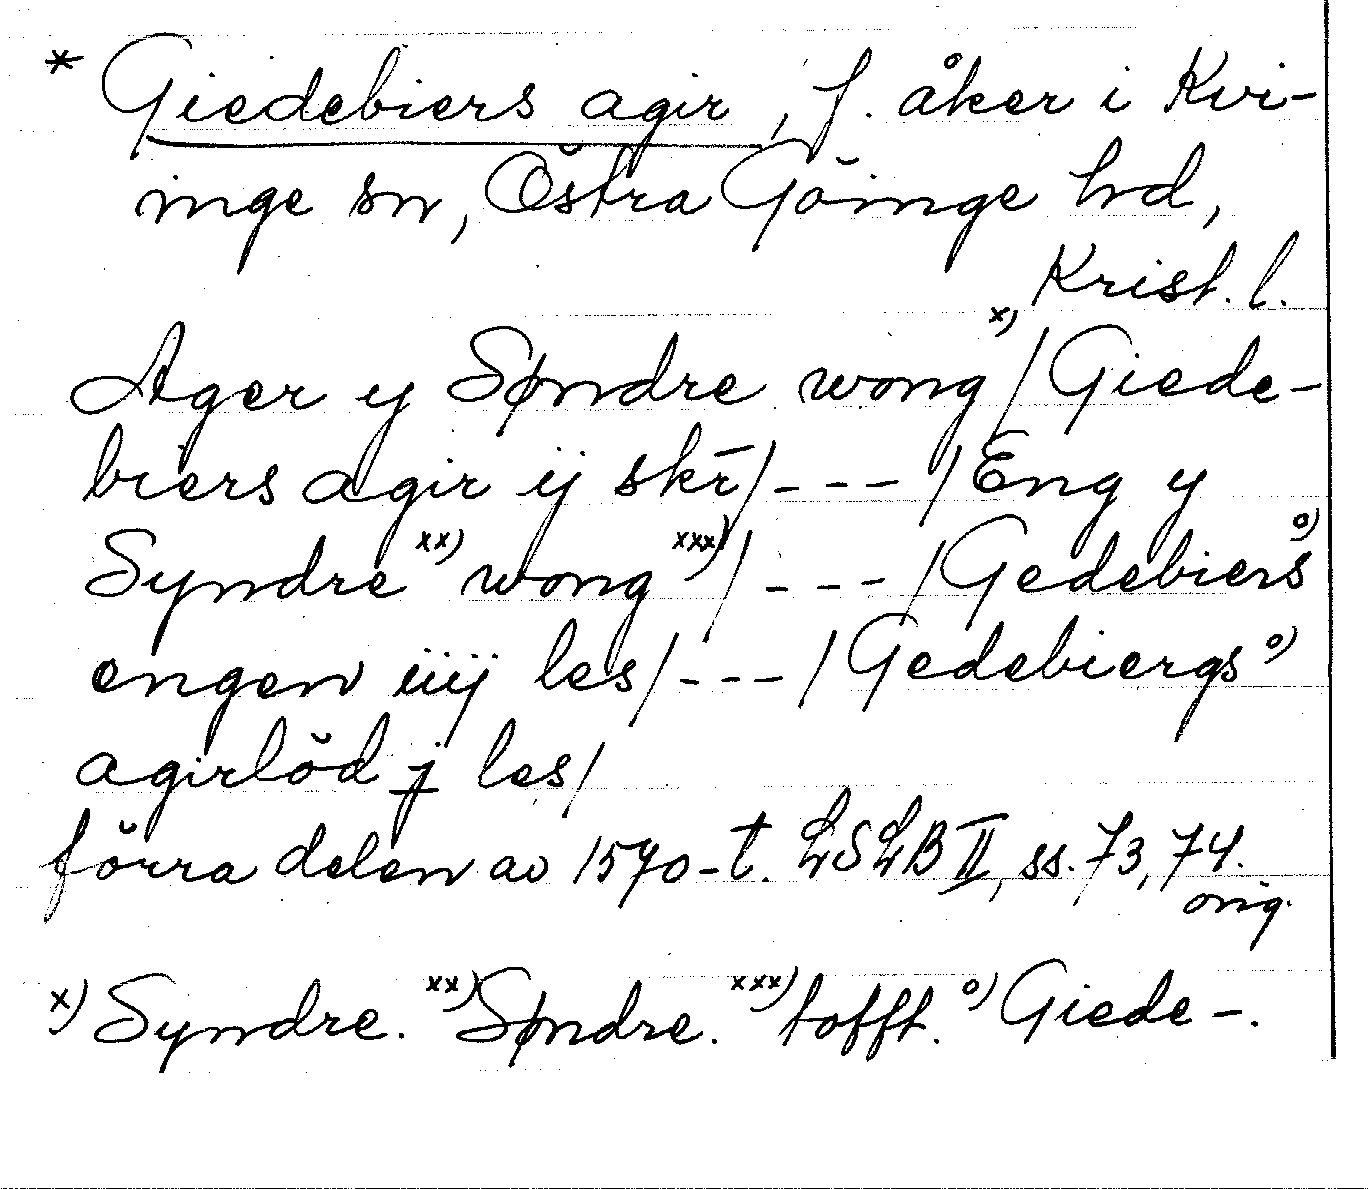 * Giedebiers agir, f. åker i Kvi-
inge sn, Östra Göinge hd,
Krist. l.
Ager y Søndre wong x) / Giede-
biers agir ij skr̄ / - - - / Eng y
Syndre xx) wong xxx) / - - - / Gedebiers o)
engen iiij les / - - - / Gedebiergs o)
agirlöd j les /
förra delen av 1570-t. LSLB II, ss. 73, 74.
orig.
x) Syndre. xx) Søndre. xxx) tofft. o) Giede-.